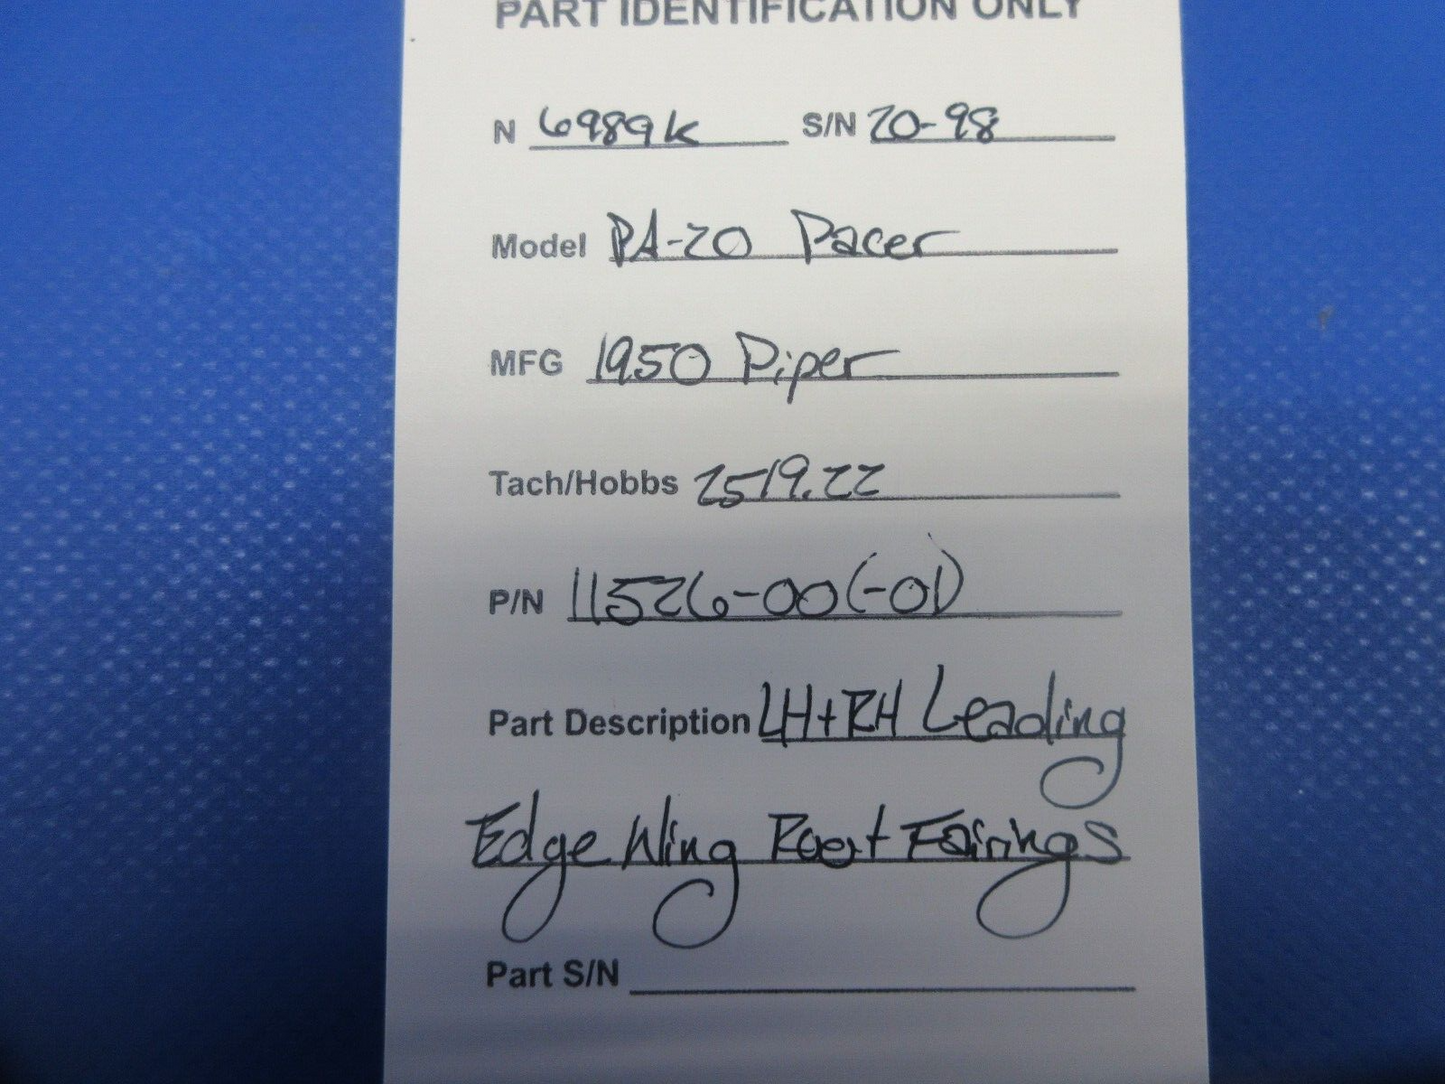 PART IDENTIFICATION ONLY
N 6989K S/N 20-98
Model PA-20 Pacer
MFG 1950 Piper
Tach/Hobbs 2519.22
P/N 11526-00(-01)
Part Description LH+RH Leading
Edge Wing Root Fairings
Part S/N